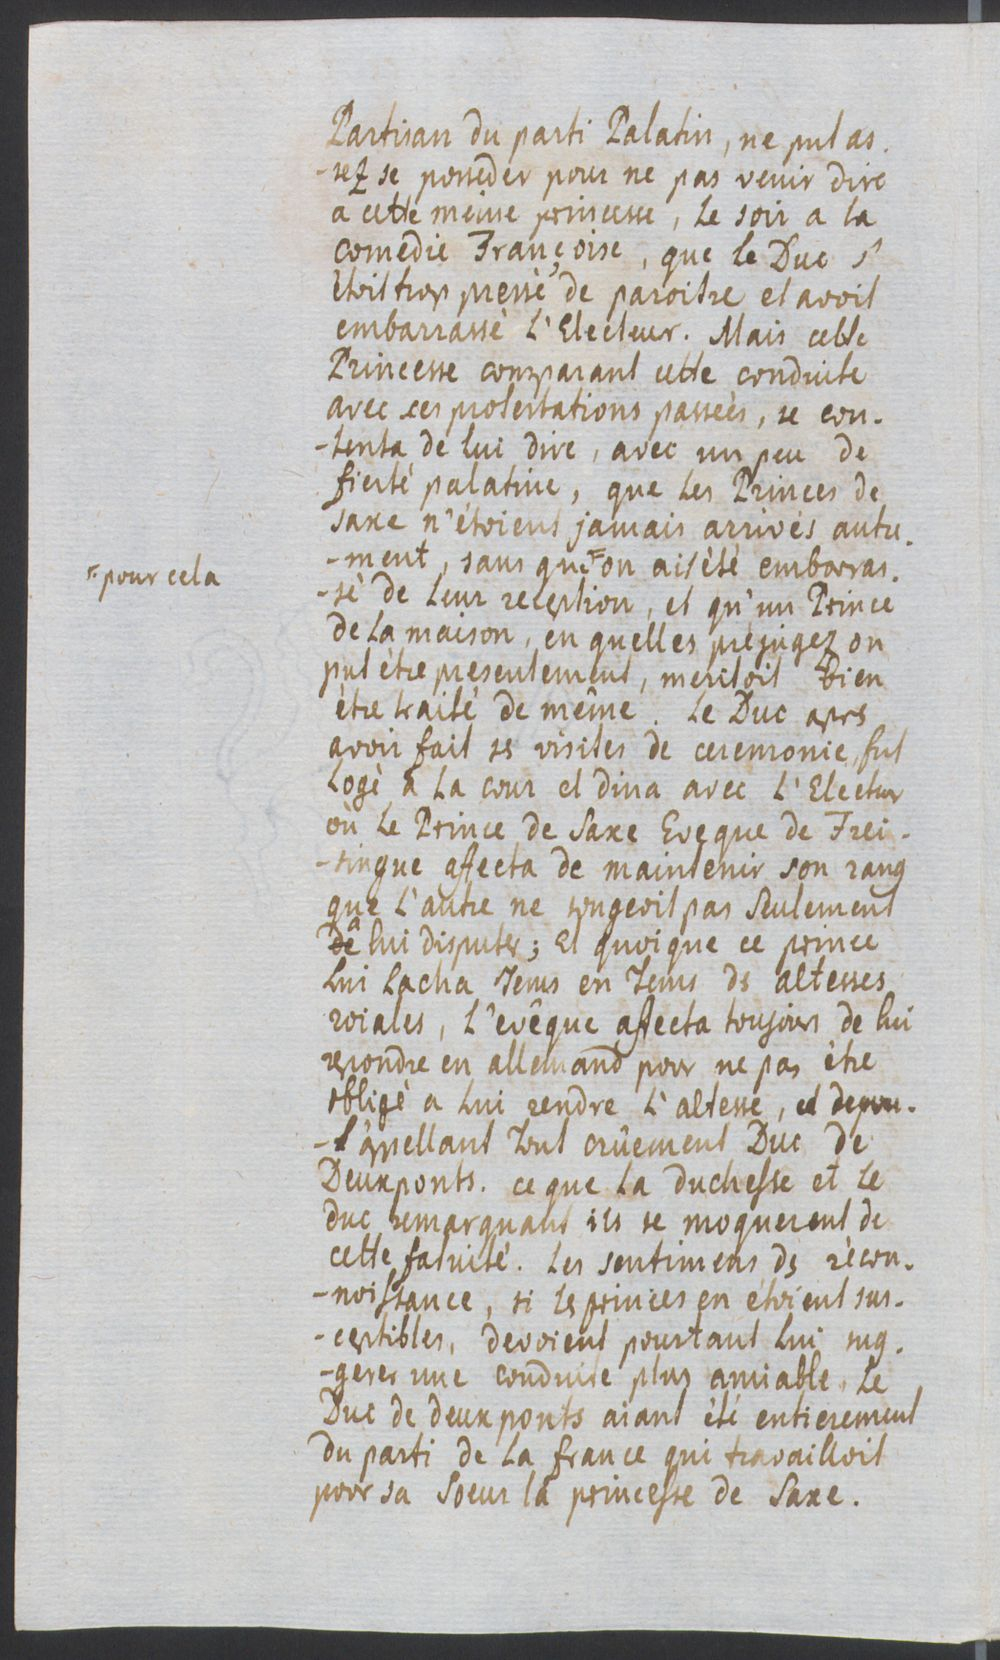 Partisan du parti Palatin, ne put as.
-sez se posseder pour ne pas venir dire
a cette meme princesse, le soir a la
comedie Françoise, que le Duc s'
étoit trop pressè de paroitre et avoit
embarrassè L'Electeur. Mais cette
Princesse comparant cette conduite
avec ses protestations passeès, se con-
-tenta de lui dire, avec un peu de
fierté palatine, que les Princes de
Saxe n'étoient jamais arrivés autre.
-ment, sans que on ait été embarras.
pour cela
-sè de leur reception, et qu'un Prince
de la maison, en quelles prejugez on
put être presentement, meritoit bien
être traité de même. Le Duc aprs
avoir fait ss visites de ceremonie, fut
logè a la cour et dina avec L'Electeur
où le Prince de Saxe Eveque de Frei-
-singue affecta de maintenir son rang
que L'autre ne songeoit pas seulement
a lui disputer; Et quoique ce prince
lui lacha tems en tems ds altesses
roiales, L'evêque affecta toujours de lui
repondre en allemand pour ne pas être
obligè a lui rendre L'altesse, et
-l'appellant tout crûement Duc de
Deuxponts. ce que la duchesse et le
duc remarquant ils se moquerent de
cette fatuité. Les sentimens ds rècon-
-noissance, si ls princes en étoient sus-
-ceptibles, devoient pourtant lui sug-
-gerer une conduite plus amiable. Le
Duc de deuxponts aiant été entierement
du parti de la france qui travailloit
pour sa Soeur la princesse de Saxe.